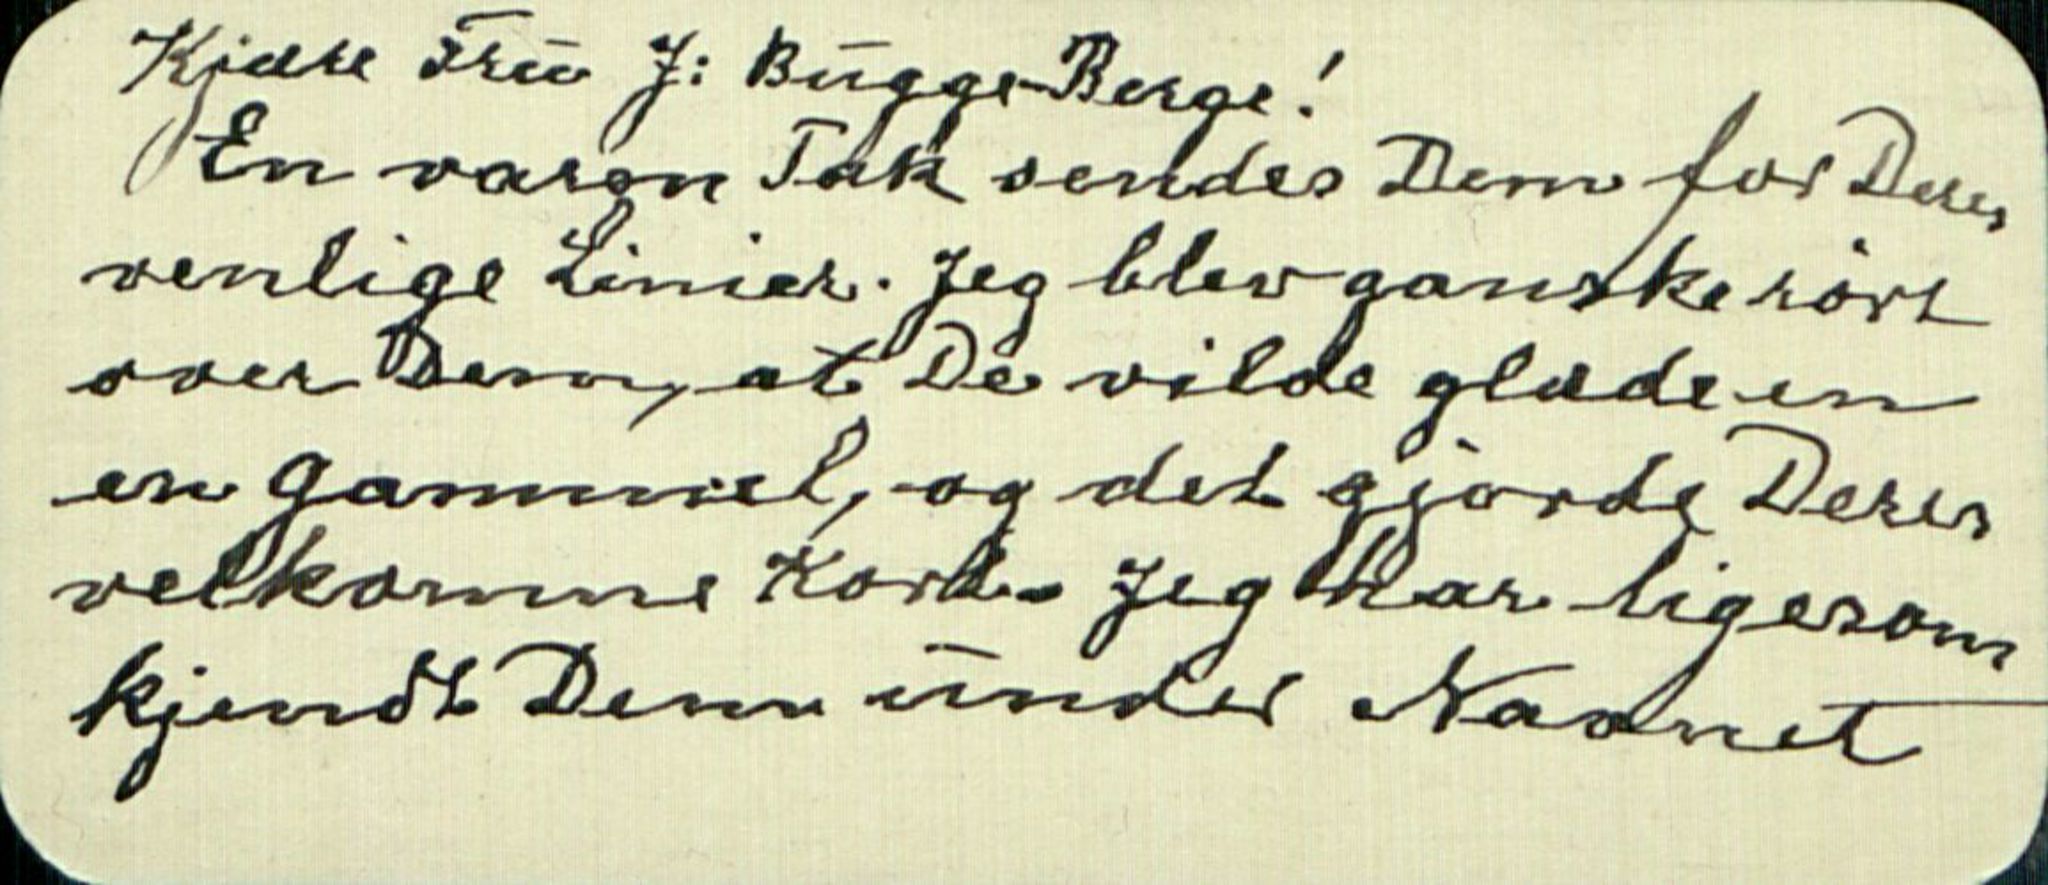 Kjære Frū J: Būgge-Berge!
En varm Tak sendes Dem for Deres
venlige Linier. Jeg blev ganske rört
over Dem, at De vilde glæde en
en Gammel, og det gjorde Deres
velkomne Kort. Jeg har ligesom
kjendt Dem ūnder Navnet